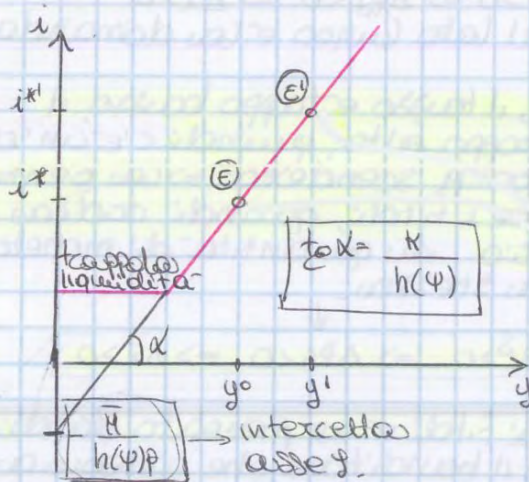 i
i*'
E'
i*
E
trappola
liquidità
tg α = K / h(ψ)
α
y⁰ y' y
- M̄ / h(ψ)p → intercetta
asse y.